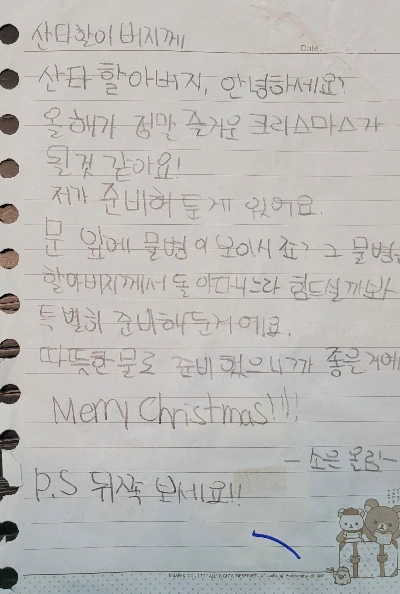 산타할아버지께
Date.
산타 할아버지, 안녕하세요?
올해가 정말 즐거운 크리스마스가
될것 같아요!
저가 준비해 둔게 있어요.
문 앞에 물병이 보이시죠? 그 물병은
할아버지께서 돌아다니느라 힘드실까봐
특별히 준비해둔거에요.
따뜻한물로 준비했으니까 좋은거에
Merry Christmas!!!!
-소은 올림-
P.S 뒤쪽 보세요!!